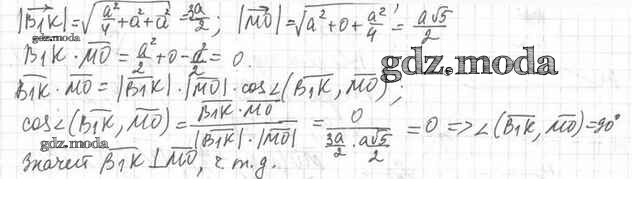 |B₁K| = √(a²/4 + a² + a²) = 3a/2; |MO| = √(a² + 0 + a²/4) = a√5/2
gdz.moda
B₁K · MO = a²/2 + 0 - a²/2 = 0.
gdz.moda
B₁K · MO = |B₁K| · |MO| · cos∠(B₁K, MO);
cos∠(B₁K, MO) = B₁K · MO / |B₁K| · |MO| = 0 / (3a/2 · a√5/2) = 0 => ∠(B₁K, MO) = 90°
gdz.moda
Значит B₁K ⊥ MO, ч т.д.